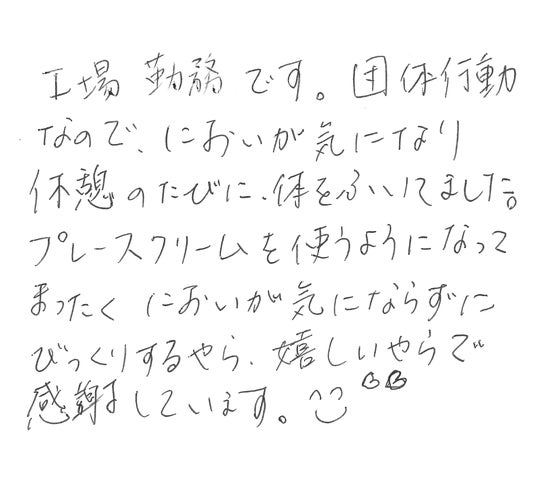 工場勤務です。団体行動
なので、においが気になり
休憩のたびに、体をふいてました。
プレースクリームを使うようになって
まったくにおいが気にならずに
びっくりするやら、嬉しいやらで
感謝しています。